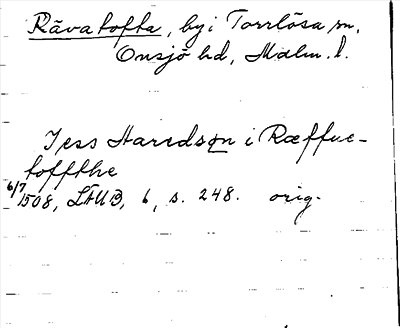 Rävatofta, by i Torrlösa sn,
Onsjö hd, Malm. l.
Jess Haredson i Ræffue-
toffthe
6/7 1508, LÄUB, 6, s. 248. orig.